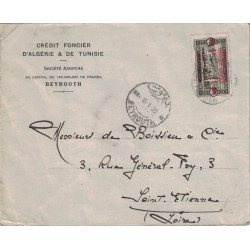 CRÉDIT FONCIER
D'ALGÉRIE & DE TUNISIE
SOCIÉTÉ ANONYME
BEYROUTH
BEYROUTH
Messieurs de P. Boissieu & Cie
3, Rue Général-Foy, 3
Saint-Etienne
(Loire)